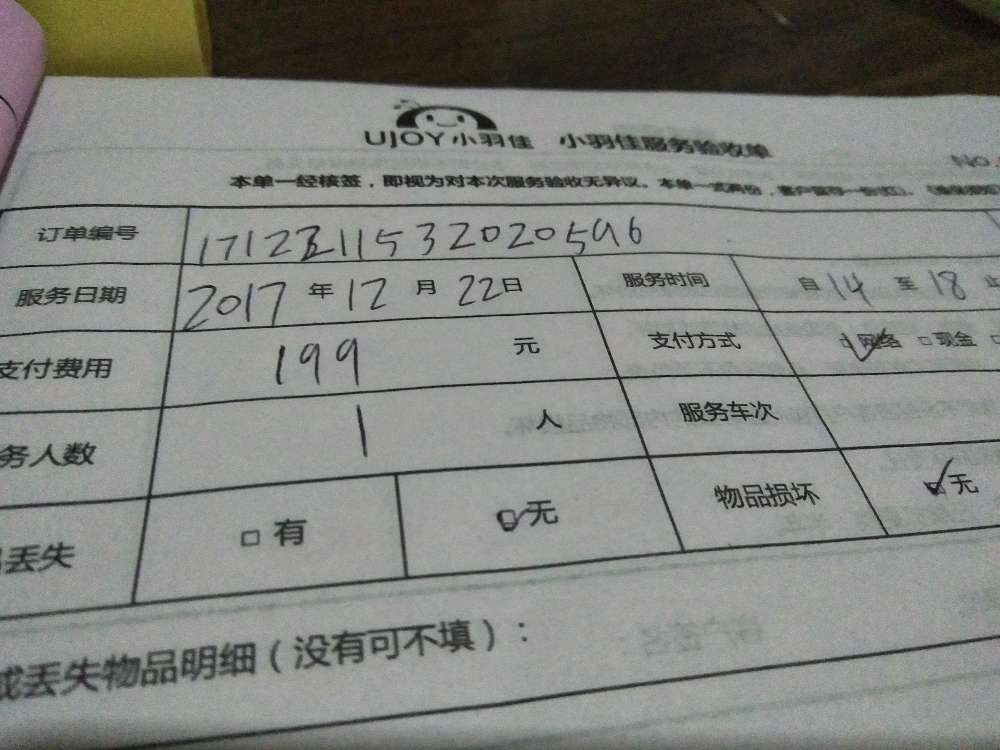 UJOY小羽佳 小羽佳服务验收单
NO.
本单一经核签，即视为对本次服务验收无异议。本单一式两份，客户留存一份
订单编号 1712211532020596
服务日期 2017年12月22日 服务时间 自14至18
支付费用 199元 支付方式 ☑网络 □现金
务人数 1人 服务车次
丢失 □有 ☑无 物品损坏 ☑无
或丢失物品明细（没有可不填）：